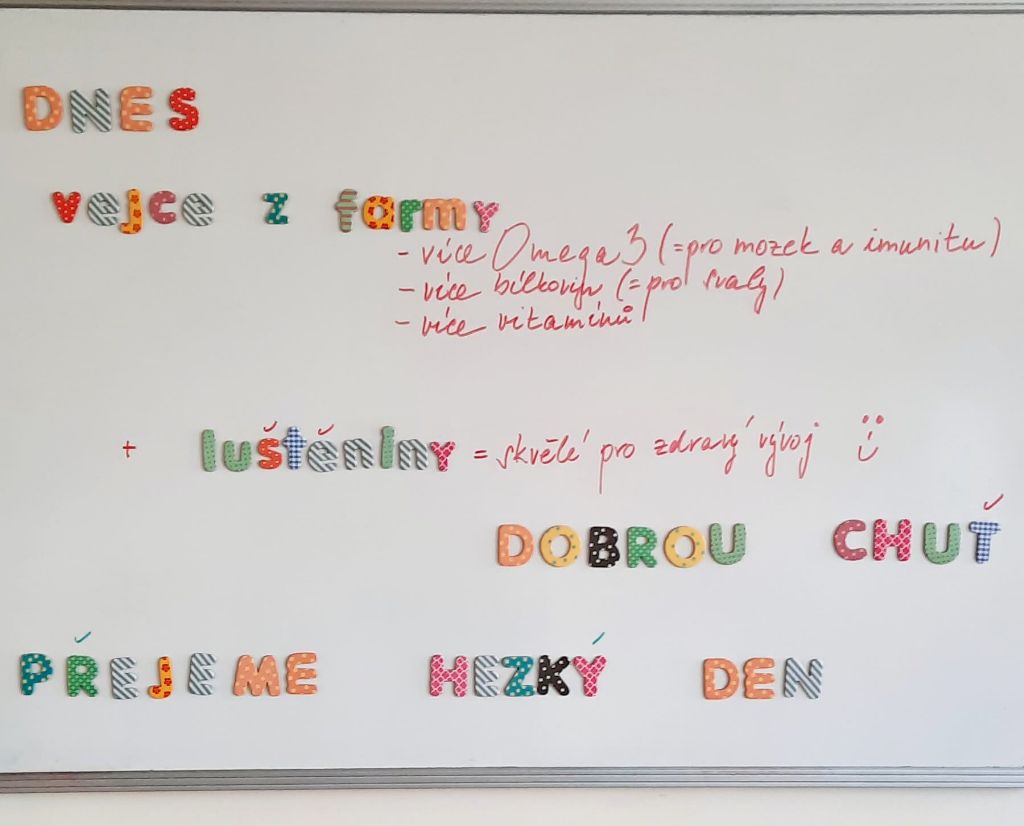 DNES
vejce z farmy
- více Omega 3 (= pro mozek a imunitu)
- více bílkovin (= pro svaly)
- více vitamínů
+ luštěniny = skvělé pro zdravý vývoj :)
DOBROU CHUŤ
PŘEJEME HEZKÝ DEN